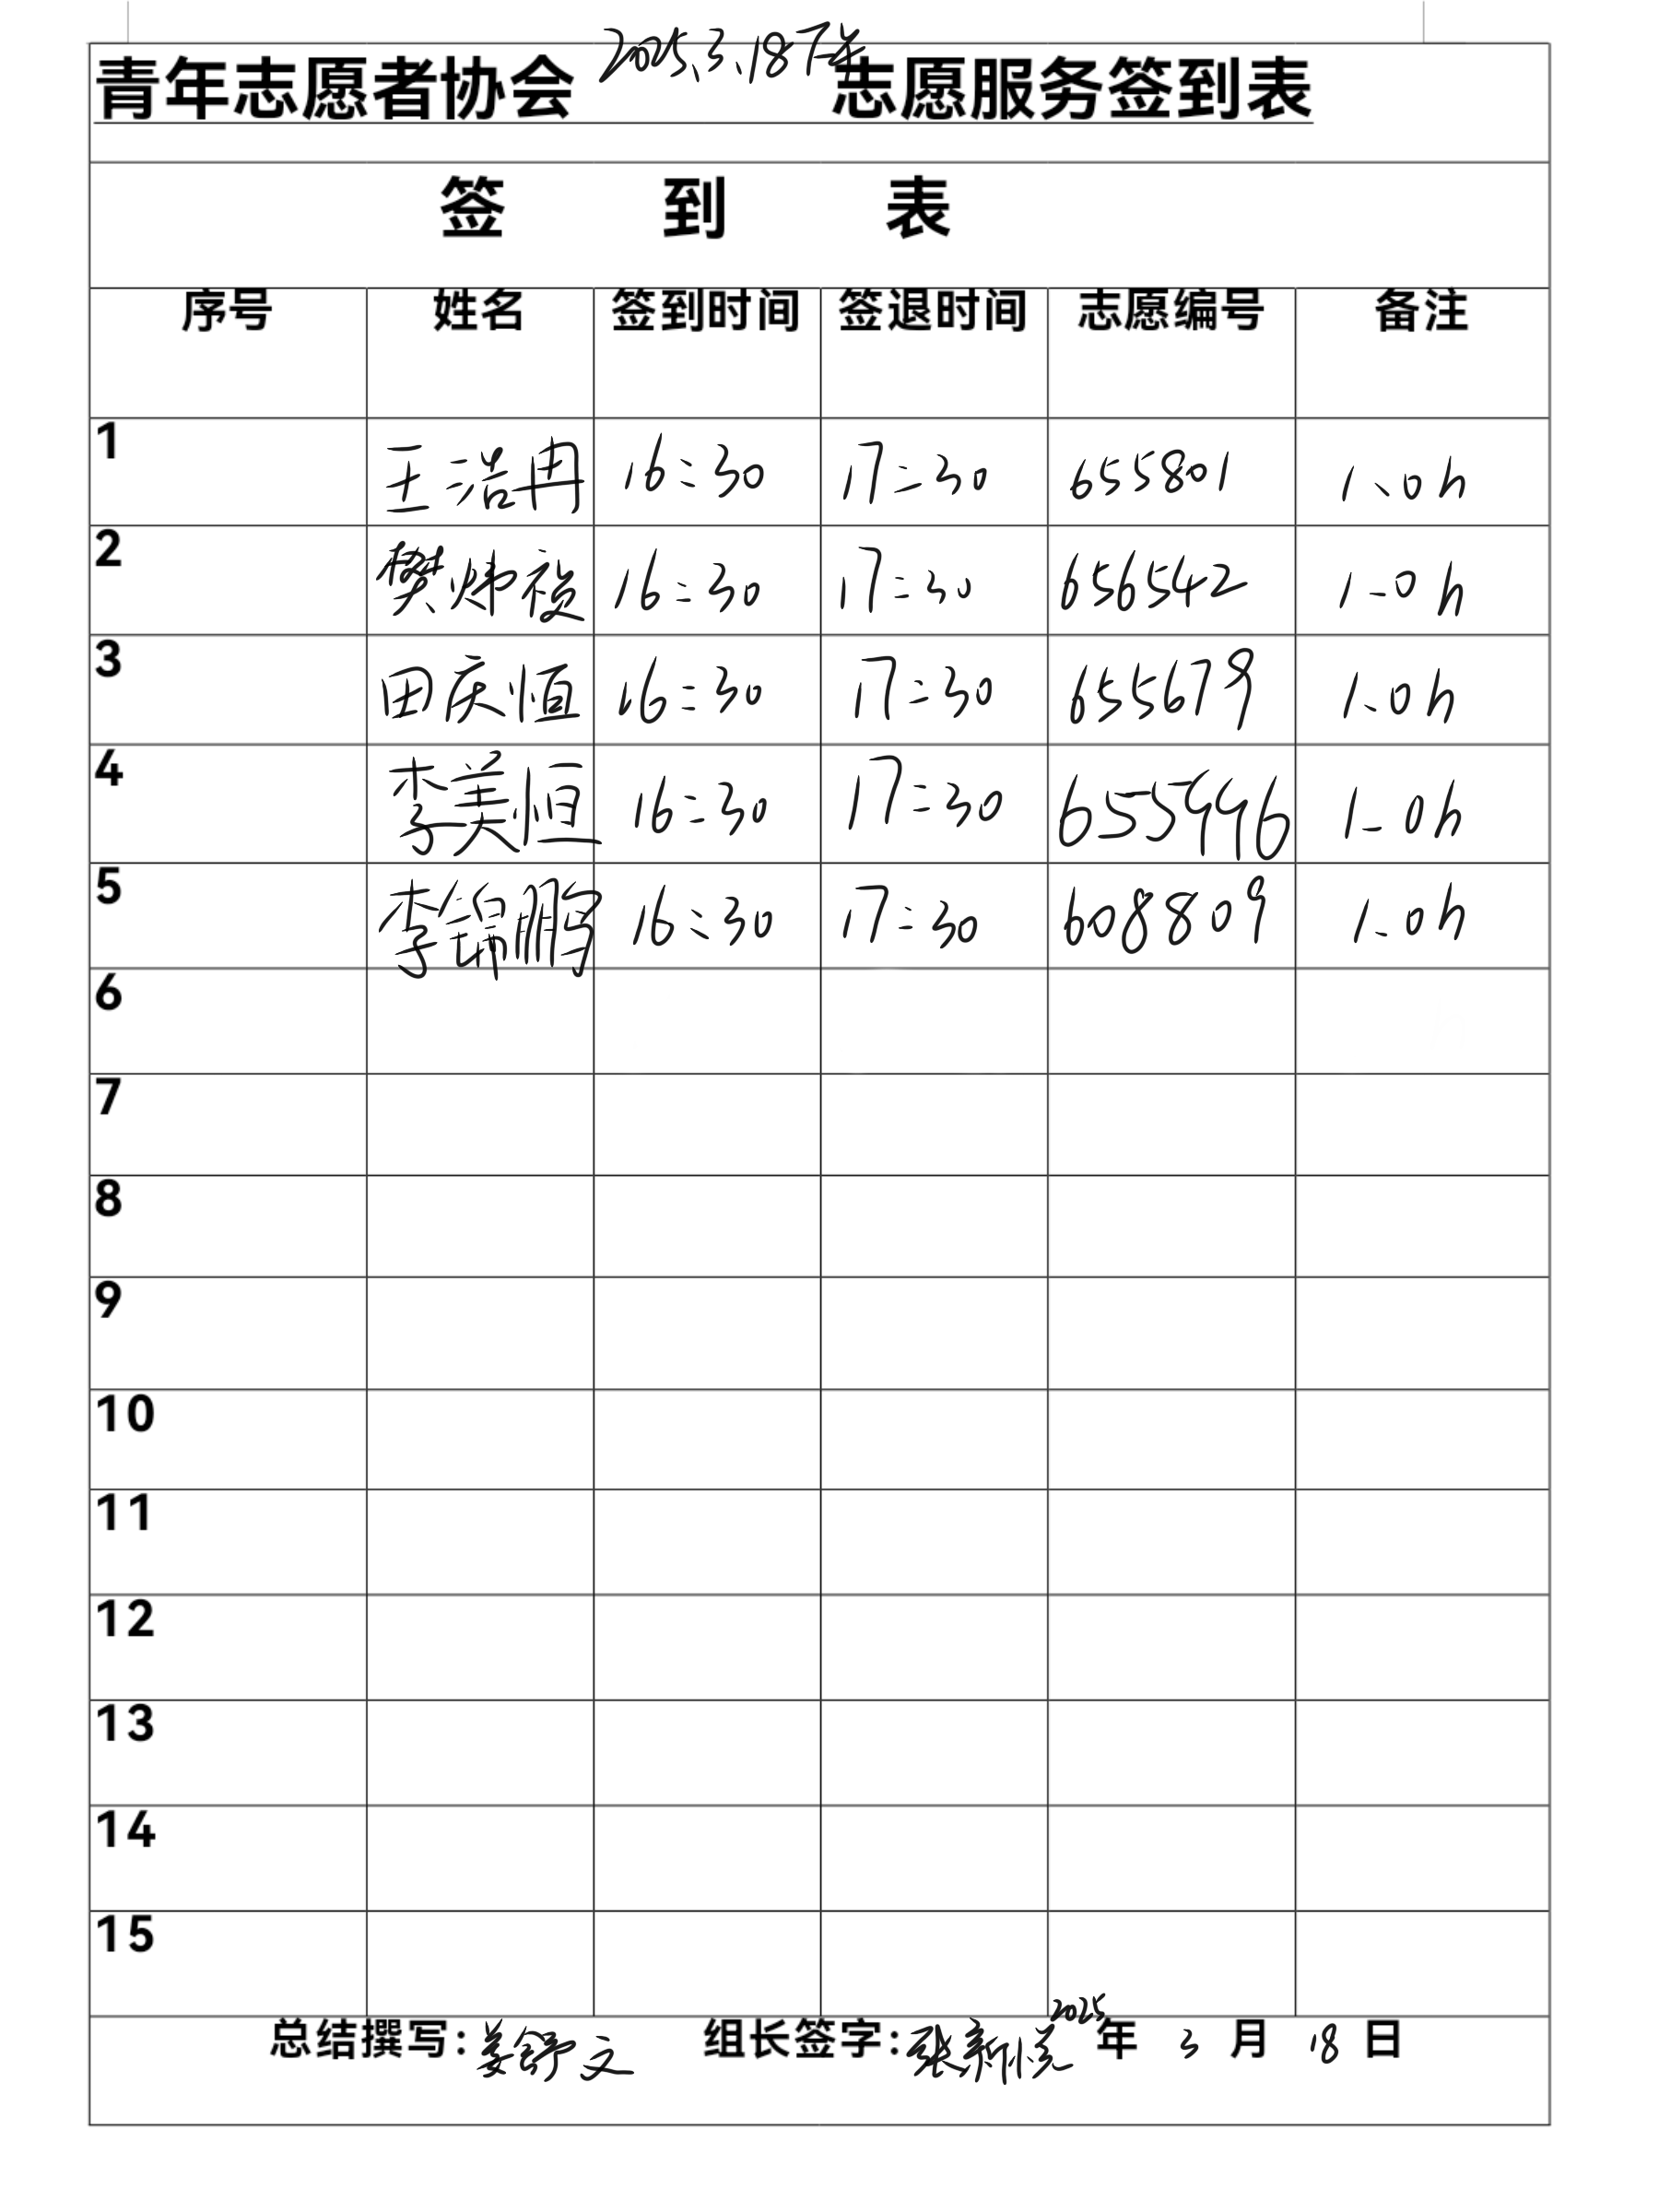 青年志愿者协会 2025.3.18下午 志愿服务签到表
签 到 表
序号 姓名 签到时间 签退时间 志愿编号 备注
1 王浩冉 16:30 17:30 655801 1.0h
2 樊 16:30 17:30 656542 1.0h
3 田庆恒 16:30 17:30 655679 1.0h
4 李美恒 16:30 17:30 655996 1.0h
5 李锦鹏 16:30 17:30 608809 1.0h
6
7
8
9
10
11
12
13
14
15
总结撰写:姜舒文 组长签字:张新悦 2025年 3 月 18 日